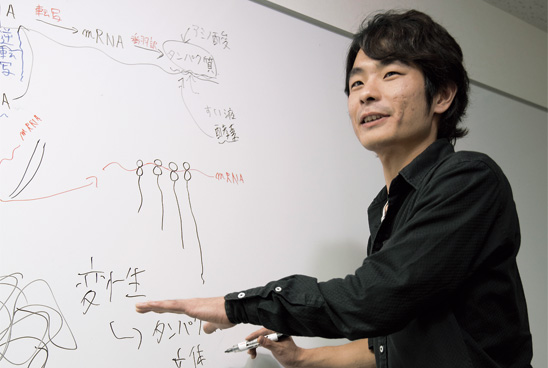 A 転写 mRNA 翻訳 タンパク質
アミノ酸
逆転写
A
すい液
酵素
mRNA
mRNA
変性
タンパク
立体